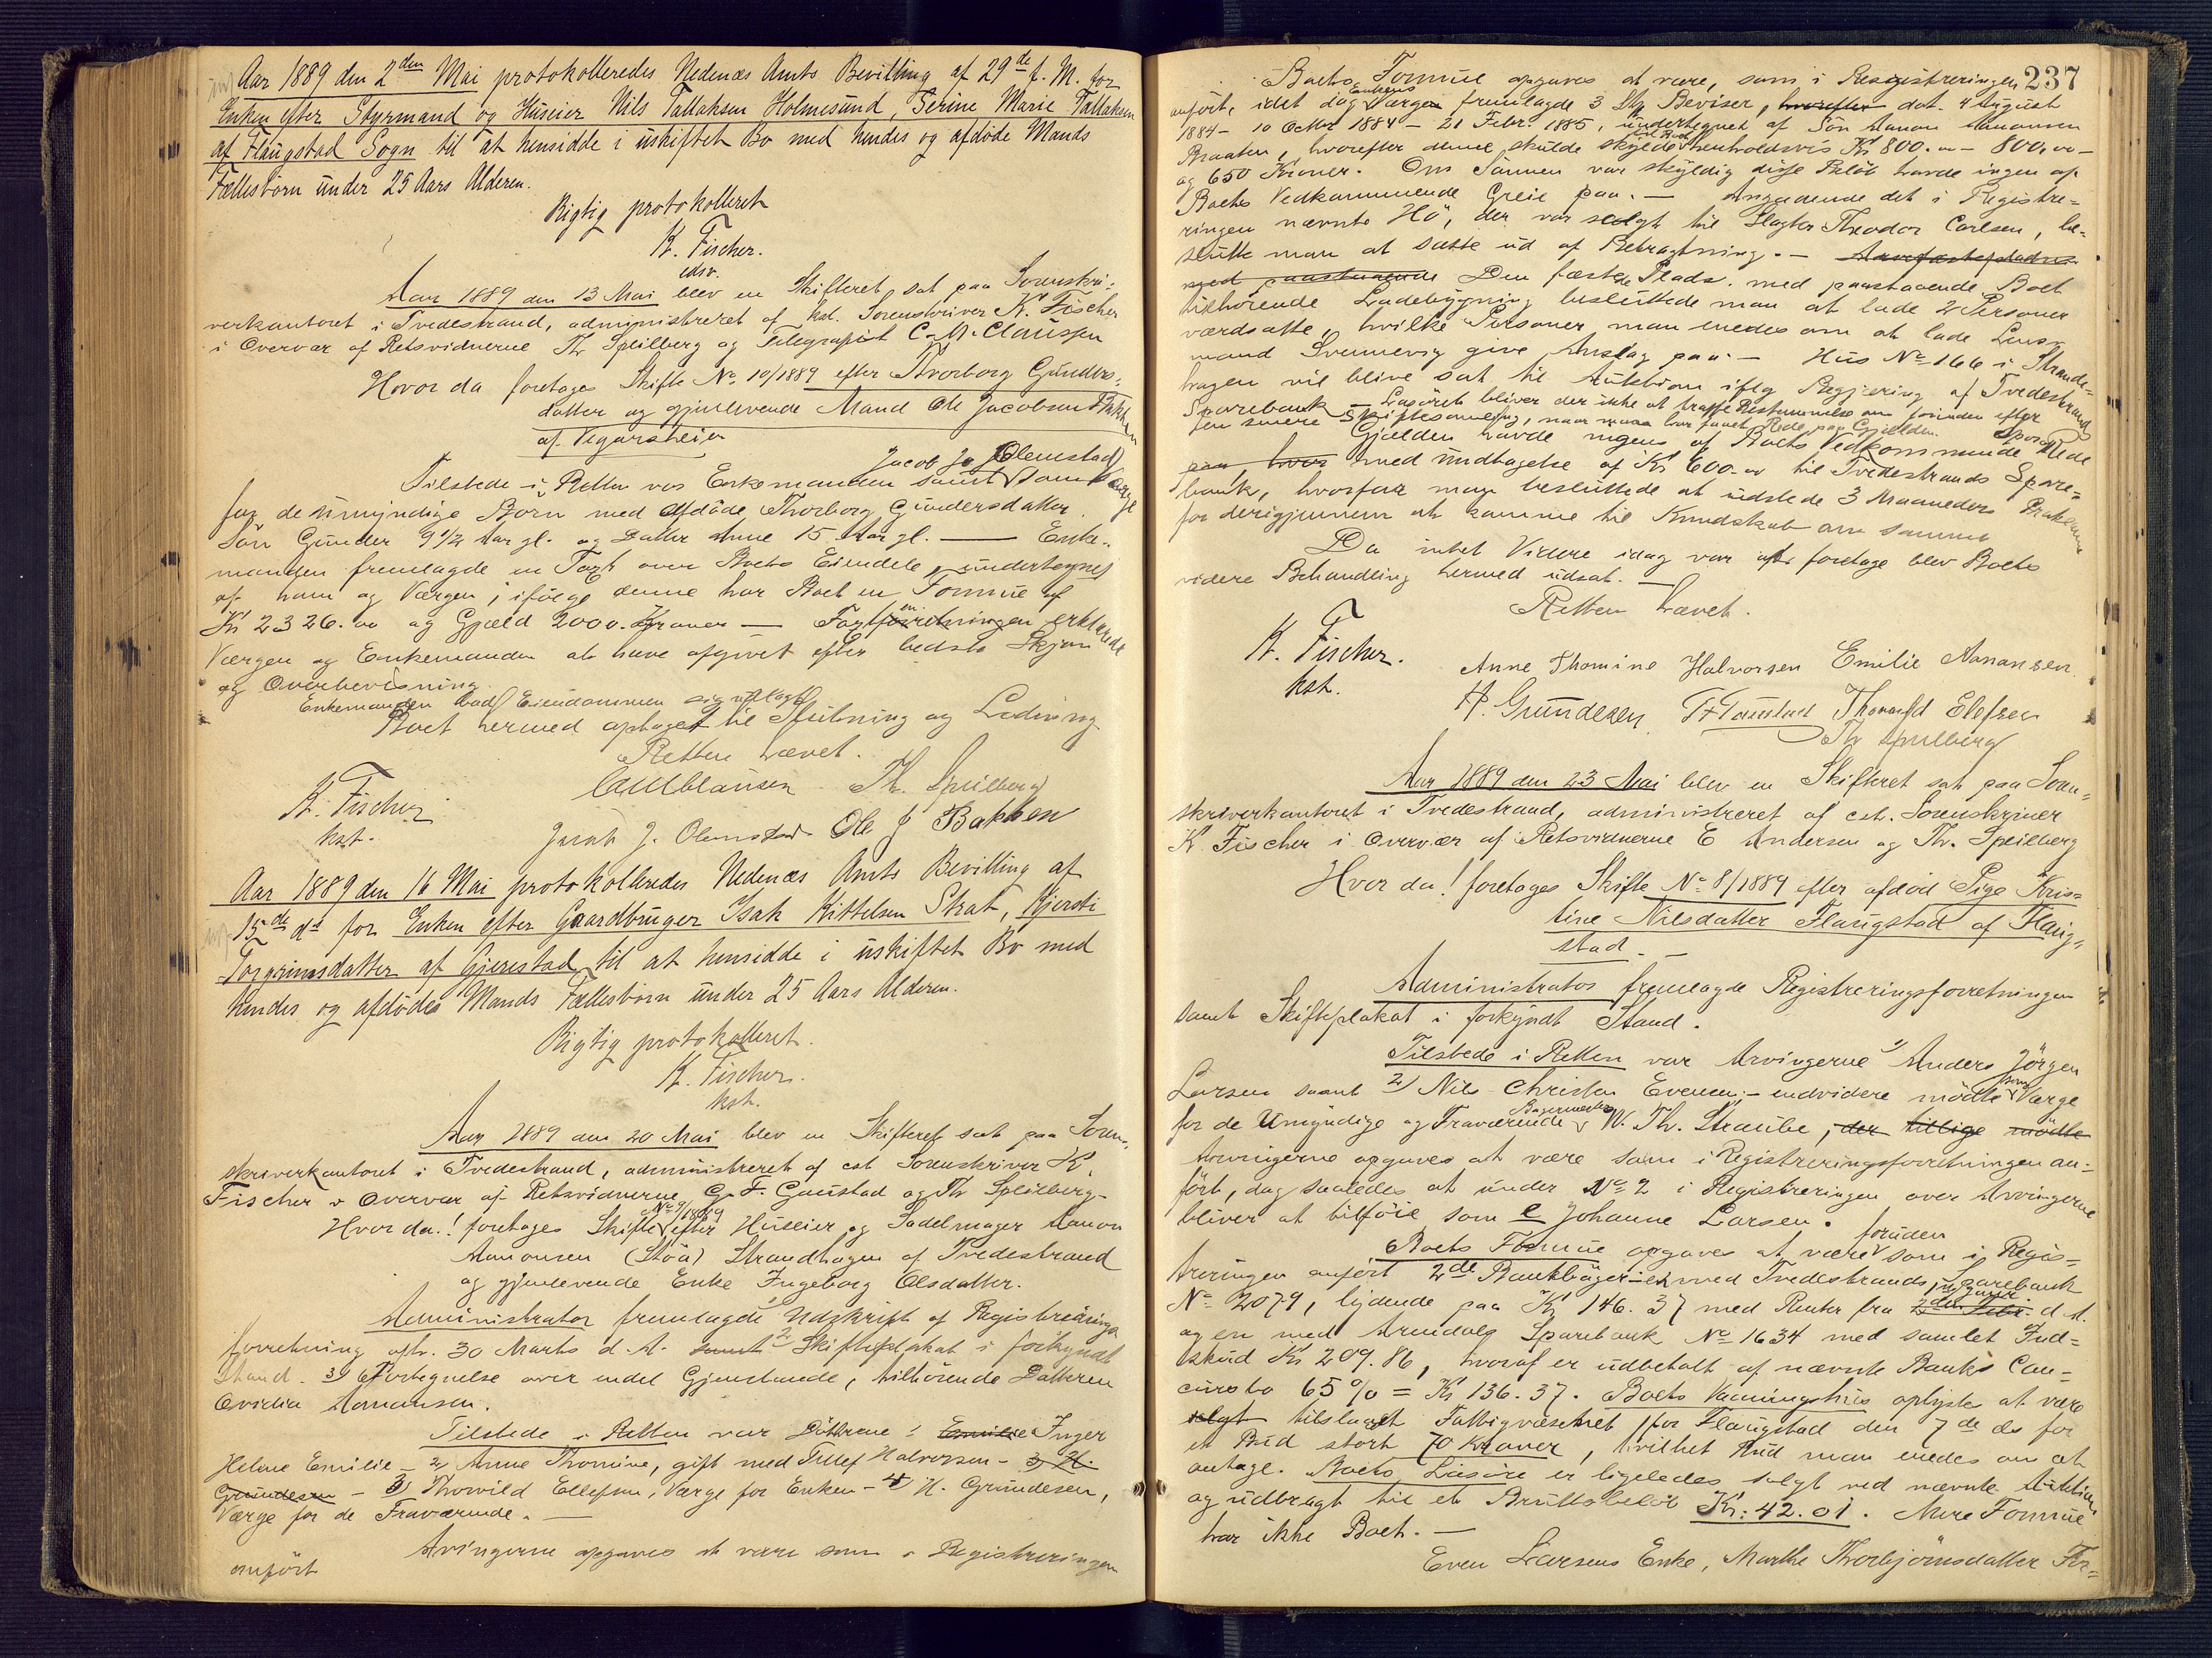 Aar 1889 den 2den Mai protokolleredes Nedenæs Amts Bevilling af 29de f. M. for
Enken efter Styrmand og Huseier Nils Tallaksen Holmesund, Serine Marie Tallaksen
af Flaugstad Sogn til at hensidde i uskiftet Bo med hendes og afdøde Mands
Fællesbørn under 25 Aars Alderen.
Rigtig protokolleret
K. Fischer.
cstr.
Aar 1889 den 13 Mai blev en Skifteret sat paa Sorenskri-
verkontoret i Tvedestrand, administreret af kst. Sorenskriver K. Fischer
i Overvær af Retsvidnerne Th Speilberg og Telegrafist C. M. Claussen
Hvor da foretages Skifte No 10/1889 efter Thorborg Gunders-
datter og gjenlevende Mand Ole Jacobsen Bakken
af Vegarsheien
Tilstede i Retten var Enkemanden samt Jacob J. Olemstad som Værge
for de umyndige Børn med Afdøde Thorborg Gundersdatter.
Søn Gunder 9 1/2 Aar gl. og Datter Anne 15 Aar gl. — Enke-
manden fremlagde en Taxt over Boets Eiendele, undertegnet
af ham og Værgen, ifølge denne har Boet en Formue af
Kr 2326.00 og Gjæld 2000. Kroner — Taxtforretningen erklærede
Værgen og Enkemanden at have afgivet efter bedste Skjøn
og Overbevisning.
Enkemanden bad Eiendommen sig udlagt
Boet hermed optaget til Slutning og Lodning
Retten hævet.
CMClausen Th. Speilberg
K. Fischer
kst.
Jacob J. Olemstad Ole J Bakken
Aar 1889 den 16 Mai protokolleredes Nedenæs Amts Bevilling af
15de ds for Enken efter Gaardbruger Isak Kittelsen Strat, Kjersti
Torgrimsdatter af Gjerestad til at hensidde i uskiftet Bo med
hendes og afdødes Mands Fællesbørn under 25 Aars Alderen.
Rigtig protokolleret.
K. Fischer.
kst.
Aar 1889 den 20 Mai blev en Skifteret sat paa Soren-
skriverkontoret i Tvedestrand, administreret af cst Sorenskriver K.
Fischer i Overvær af Retsvidnerne G. F. Gaustad og Th Speilberg-
Hvor da! foretages Skifte No 9/1889 efter Huseier og Sadelmager Aanon
Aanonsen (Støa) Strandhagen af Tvedestrand
og gjenlevende Enke Ingeborg Olsdatter.
Administrator fremlagde 1) Udskrift af Registrerings
forretning afh. 30 Marts d. A. samt 2) Skifteplakat i forkyndt
Stand. 3) Fortegnelse over endel Gjenstande, tilhørende Datteren
Ovidia Aanonsen.
Tilstede i Retten var Døttrene: Emilie Inger
Helene Emilie — 2) Anne Thomine, gift med Tellef Halvorsen — 3) H.
Grundesen — 3) Thorvild Ellefsen, Værge for Enken — 4) H. Grundesen,
Værge for de Fraværende. —
Arvingerne opgaves at være som i Registreringen
anført
237
Boets Formue opgaves at være, som i Registreringen
anført, idet dog Enkens Værge fremlagde 3 Stk Beviser, hvorefter dat. 4 August
1884 – 10 Octbr 1884 – 21 Febr. 1885, undertegnet af Søn Aanon Aanonsen
Braaten, hvorefter denne skulde skylde Boet henholdsvis Kr 800.00 – 800.00 –
og 650 Kroner. Om Sønnen var skyldig disse Beløb havde ingen af
Boets Vedkommende Greie paa. — Angaaende det i Registre-
ringen nævnte Hø, der var solgt til Slagter Theodor Carlsen, be-
sluttede man at sætte ud af Betragtning. —
med paastaaende Den fæstede Plads med paastaaende Boet
tilhørende Ladebygning besluttede man at lade 2 Personer
værdsætte, hvilke Personer man enedes om at lade Lens-
mand Svennevig give Anslag paa. — Hus No 166 i Strande-
hagen vil blive sat til Auktion ifølg Begjæring af Tvedestrand
Sparebank — Løsøret bliver der ikke at træffe Bestemmelse om forinden efter
en senere Skiftesamling, naar man har faaet Rede paa Gjælden.
Gjælden havde ingen af Boets Vedkommende Rede
paa, hvor med Undtagelse af Kr 600.00 til Tvedestrands Spare-
bank, hvorfor man besluttede at udstede 3 Maaneders Proklama
for derigjennem at komme til Kundskab om samme
Da intet Videre idag var at foretage blev Boets
videre Behandling hermed udsat. —
Retten hævet.
K. Fischer.
kst.
Anne Thomine Halvorsen Emilie Aanansen.
H. Grundesen, GFGaustad Thorvald Elefsen
Th Speilberg
Aar 1889 den 23 Mai blev en Skifteret sat paa Soren-
skriverkontoret i Tvedestrand, administreret af cst. Sorenskriver
K Fischer i Overvær af Retsvidnerne E Andersen og Th. Speilberg
Hvor da! foretages Skifte No 8/1889 efter afdød Pige Kris-
tine Nilsdatter Flaugstad af Flaug-
stad.
Administrator fremlagde Registreringsforretningen
samt Skifteplakat i forkyndt Stand.
Tilstede i Retten var Arvingerne 1) Anders Jørgen
Larsen samt 2) Nils Christen Evensen; — endvidere mødte som Værge
for de Umyndige og Fraværende Bagermester W. Th. Straube, der tillige mødte
Arvingerne opgaves at være som i Registreringsforretningen an-
ført, dog saaledes at under No 2 i Registreringen over Arvingerne
bliver at tilføie som e Johanne Larsen.
Boets Formue opgaves at være foruden som i Regis-
treringen anført 2de Bankbøger: en med Tvedestrands Sparebank
No 2079, lydende paa Kr 146.37 med Renter fra 1 Januar d. A.
og en med Arendals Sparebank No 1634 med samlet Ind-
skud Kr 209.86, hvoraf er udbetalt af nævnte Banks Con-
cursbo 65 % = Kr 136.37. Boets Vaaningshus oplystes at være
solgt tilslaaet Fattigvæsenet for Flaugstad den 7de ds for
et Bud stort 70 Kroner, hvilket Bud man enedes om at
antage. Boets Løsøre er ligeledes solgt ved nævnte Auktion
og udbragt til et Bruttobeløb Kr: 42.01. Mere Formue
har ikke Boet. —
Even Larsens Enke, Marthe Thorbjørnsdatter For-